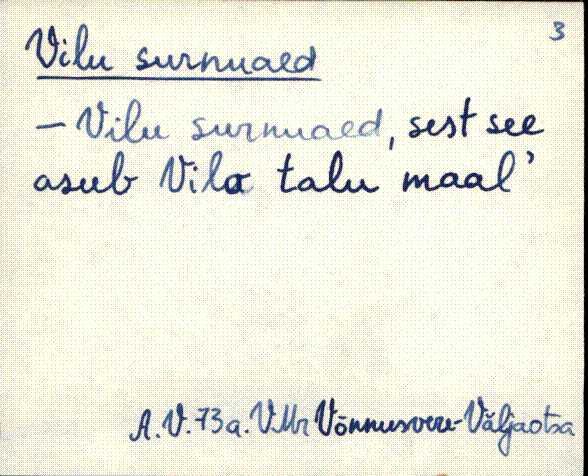 3
Vilu surnuaed
– Vilu surnuaed, sest see
asub Vila talu maal'
A.V. 73 a. VMr Võnnusvere-Väljaotsa